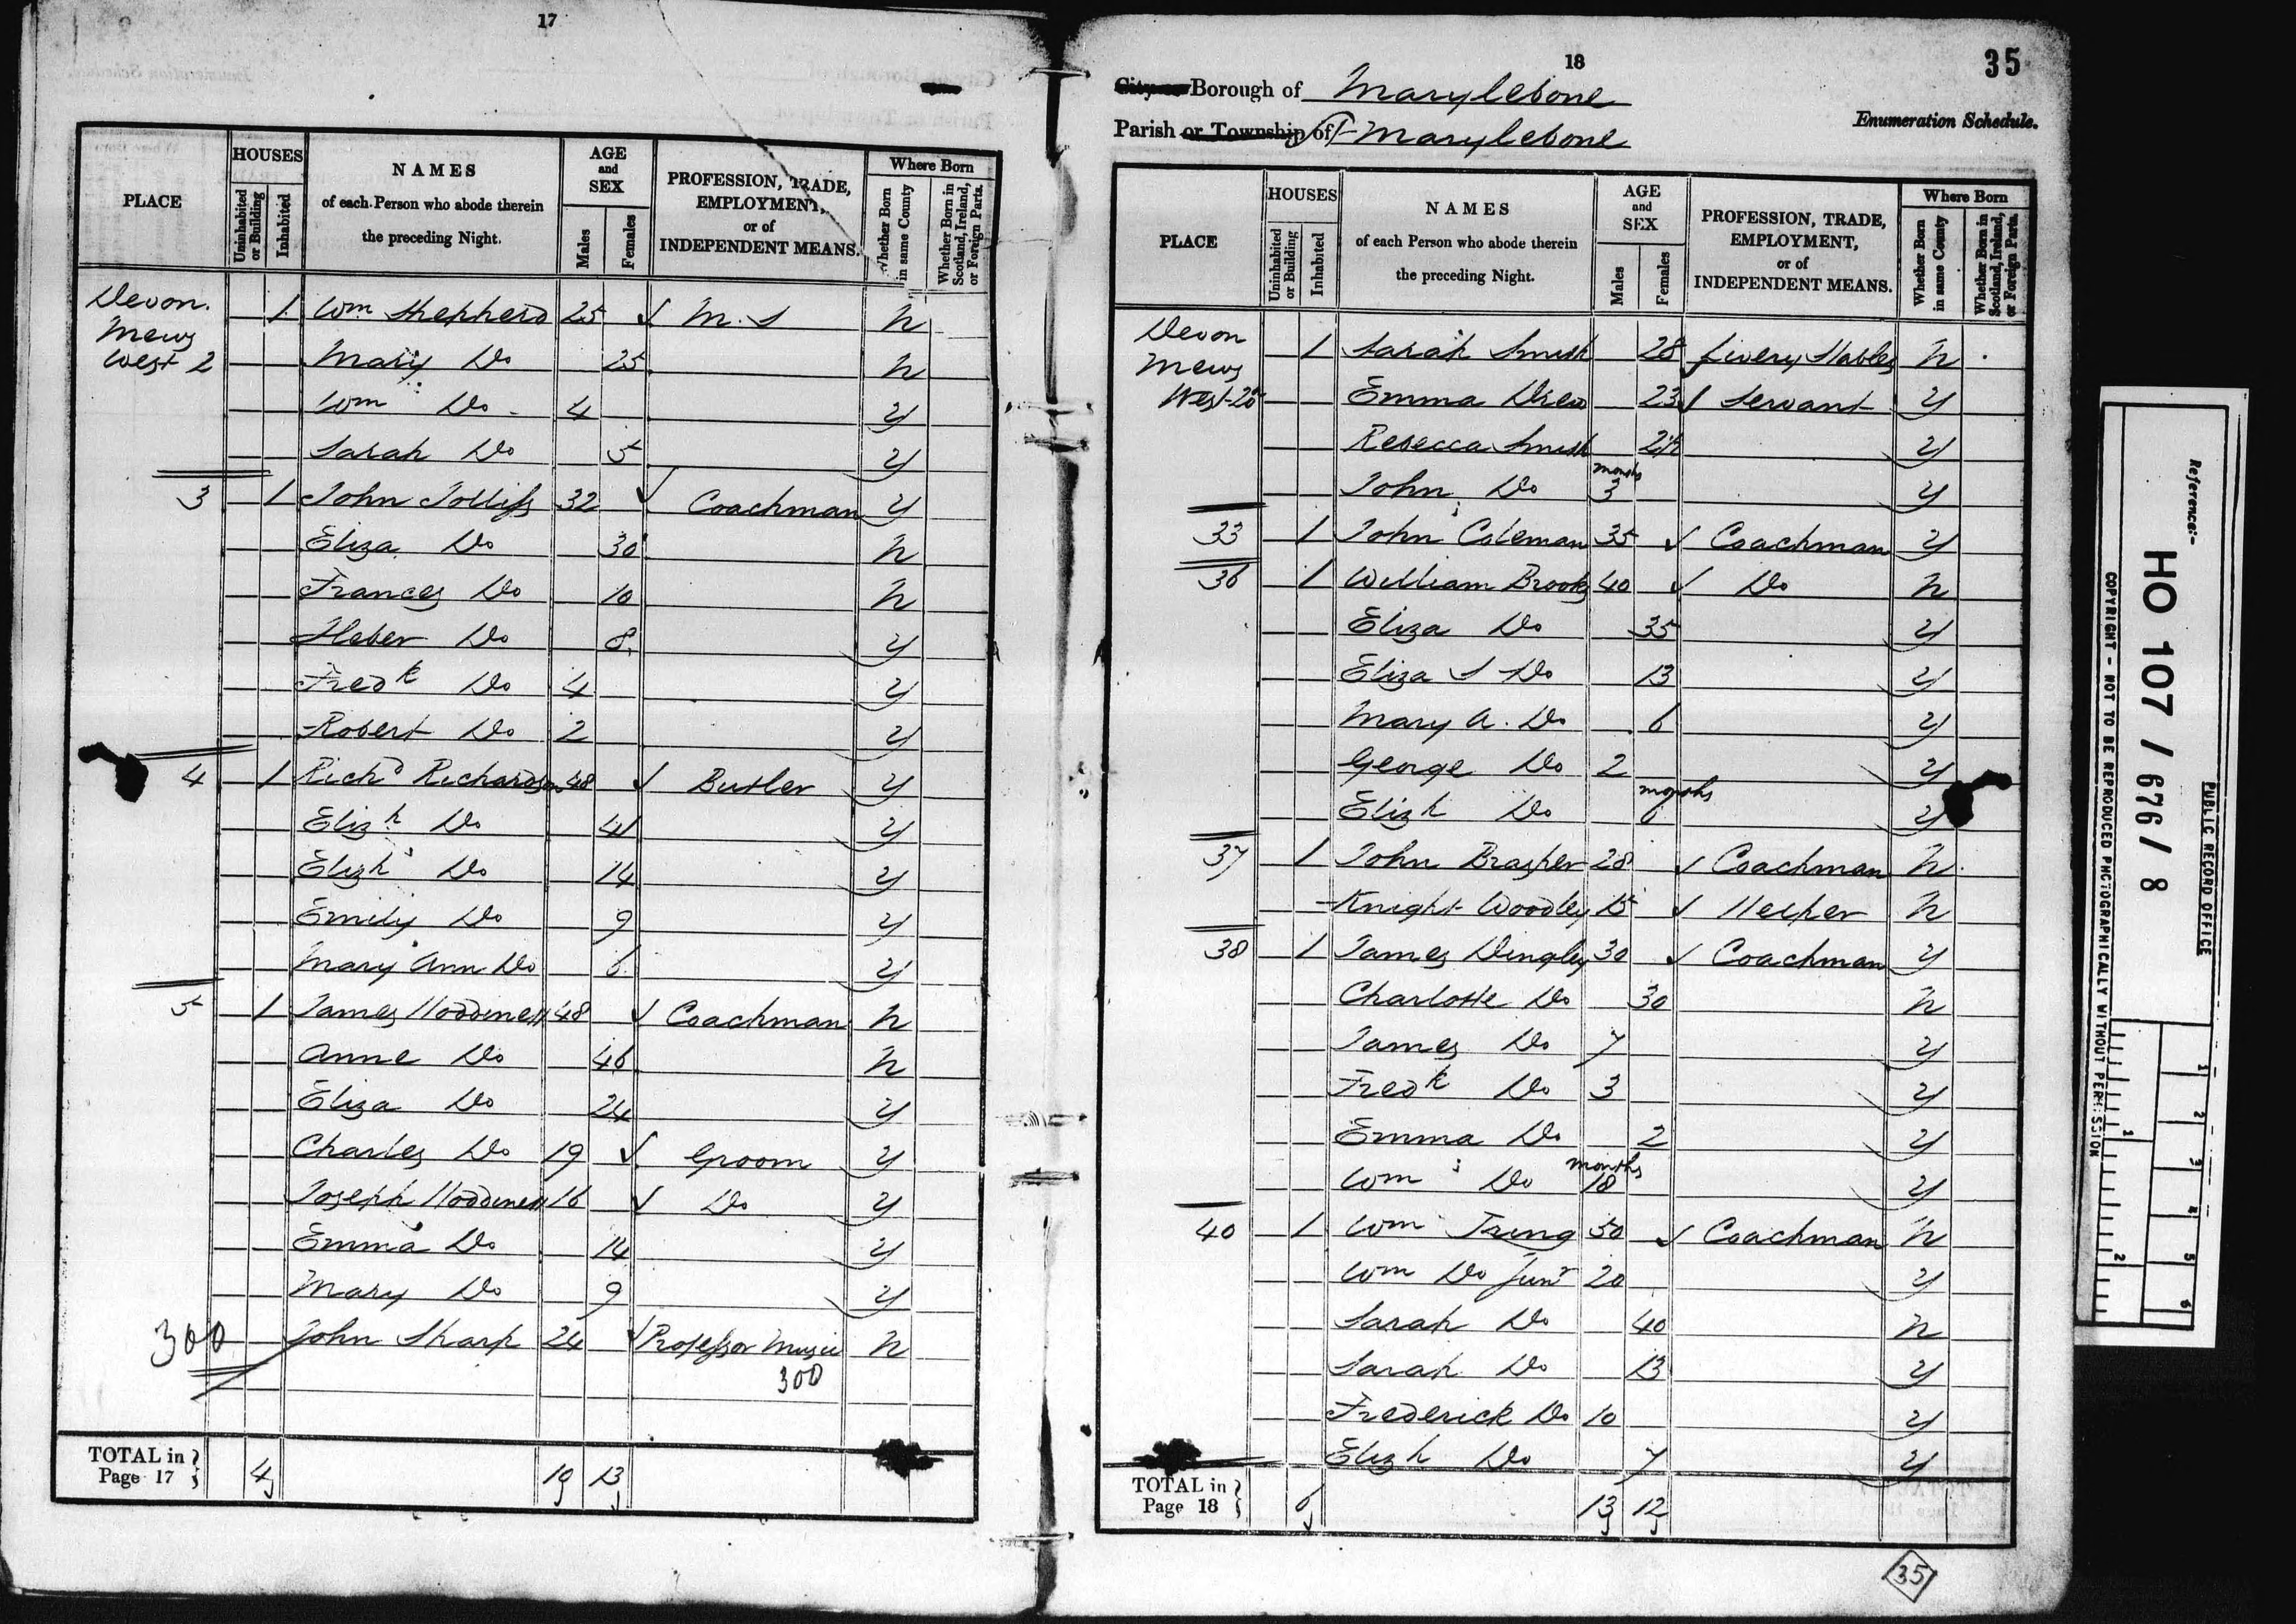 17
PLACE HOUSES Uninhabited or Building Inhabited NAMES of each Person who abode therein the preceding Night. AGE and SEX Males Females PROFESSION, TRADE, EMPLOYMENT, or of INDEPENDENT MEANS. Where Born Whether Born in same County Whether Born in Scotland, Ireland, or Foreign Parts.
Devon. 1 Wm Shepherd 25 M. S N
Mews
West 2 Mary Do 25 N
Wm Do 4 Y
Sarah Do 5 Y
3 1 John Jolliffs 32 Coachman Y
Eliza Do 30 N
Frances Do 10 N
Heber Do 8 Y
Fredk Do 4 Y
Robert Do 2 Y
4 1 Richd Richardson 48 Butler Y
Elizh Do 41 Y
Elizh Do 14 Y
Emily Do 9 Y
Mary Ann Do 6 Y
5 1 James Hoddinett 48 Coachman N
Anne Do 46 N
Eliza Do 24 Y
Charles Do 19 Groom Y
Joseph Hoddinett 16 Do Y
Emma Do 14 Y
Mary Do 9 Y
300 John Sharp 24 Professor Music N
300
TOTAL in Page 17 4 10 13
18
35
City or Borough of Marylebone
Parish or Township of Marylebone
Enumeration Schedule.
PLACE HOUSES Uninhabited or Building Inhabited NAMES of each Person who abode therein the preceding Night. AGE and SEX Males Females PROFESSION, TRADE, EMPLOYMENT, or of INDEPENDENT MEANS. Where Born Whether Born in same County Whether Born in Scotland, Ireland, or Foreign Parts.
Devon 1 Sarah Smith 28 Livery Stables N
Mews
West Emma Drew 23 Servant Y
Rebecca Smith Y
John Do 3 months Y
33 1 John Coleman 35 Coachman Y
36 1 William Brooks 40 Do N
Eliza Do 35 Y
Eliza S Do 13 Y
Mary A. Do 6 Y
George Do 2 Y
Elizh Do 6 months Y
37 1 John Brasher 28 Coachman N
Knight Woodley 15 Helper N
38 1 James Dingley 30 Coachman Y
Charlotte Do 30 N
James Do 7 Y
Fredk Do 3 Y
Emma Do 2 Y
Wm Do 18 months Y
40 1 Wm Tring 50 Coachman N
Wm Do Junr 20 Y
Sarah Do 40 N
Sarah Do 13 Y
Frederick Do 10 Y
Elizh Do 7 Y
TOTAL in Page 18 6 13 12
35
Reference:-
PUBLIC RECORD OFFICE
HO 107 / 676 / 8
COPYRIGHT - NOT TO BE REPRODUCED PHOTOGRAPHICALLY WITHOUT PERMISSION
1 2 3 4 5 6
1 2